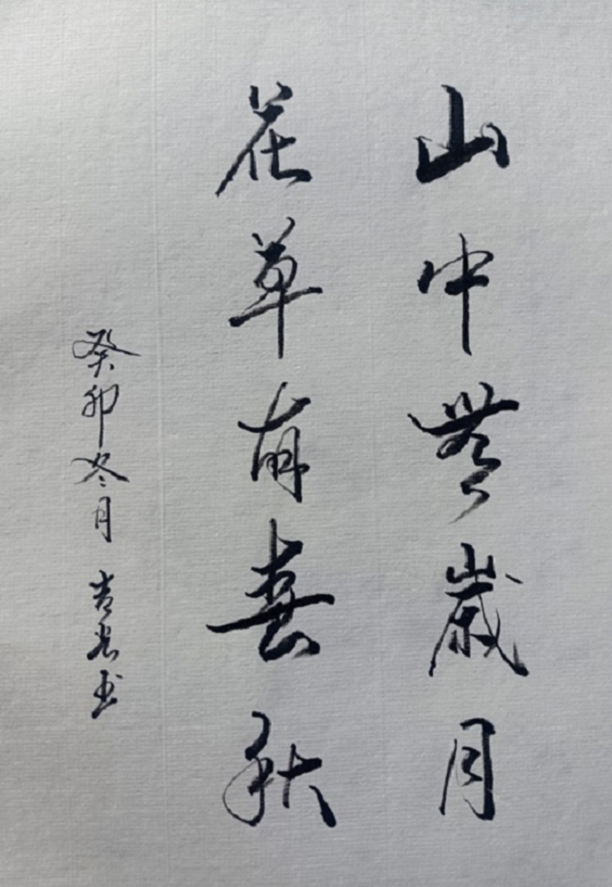 山中無歲月
花草有春秋
癸卯冬月 吉光书